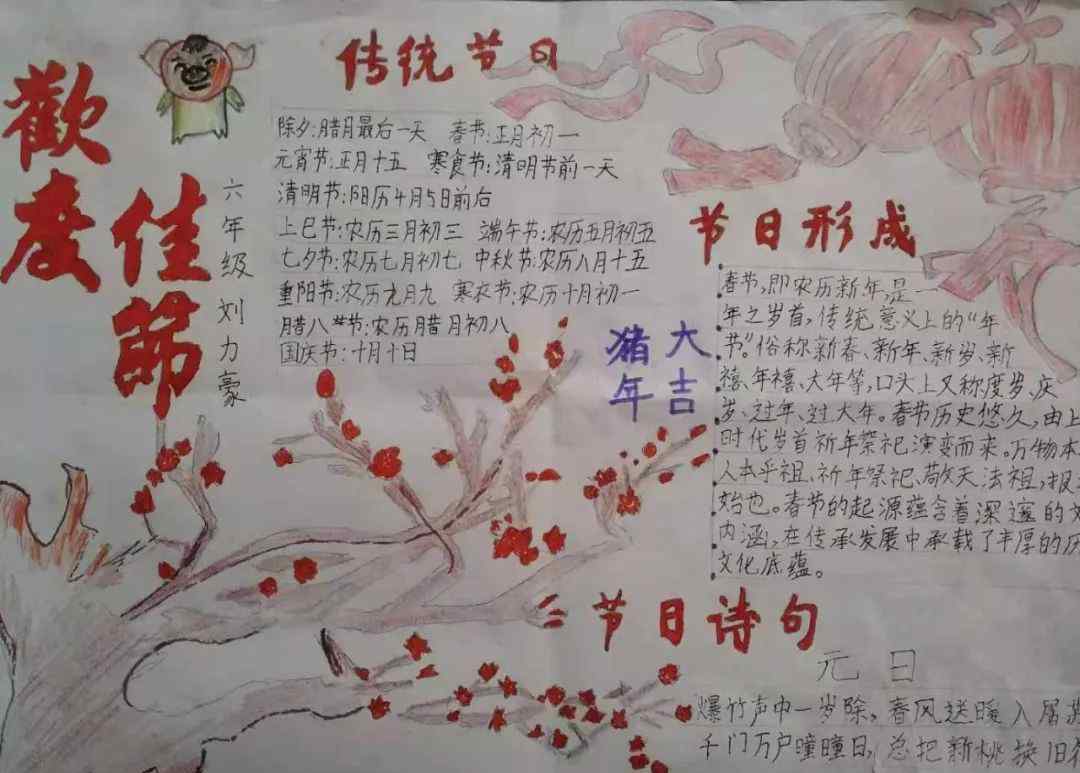 歡度佳節
六年级刘力豪
传统节日
除夕:腊月最后一天 春节:正月初一
元宵节:正月十五 寒食节:清明节前一天
清明节:阳历4月5日前后
上巳节:农历三月初三 端午节:农历五月初五
七夕节:农历七月初七 中秋节:农历八月十五
重阳节:农历九月九 寒衣节:农历十月初一
腊八节:农历腊月初八
国庆节:十月十日
猪年
大吉
节日形成
春节,即农历新年,是一
年之岁首,传统意义上的“年
节”。俗称新春、新年、新岁、新
禧、年禧、大年等,口头上又称度岁、庆
岁、过年、过大年。春节历史悠久,由上
时代岁首祈年祭祀演变而来。万物本
人本乎祖、祈年祭祀、敬天法祖,报
始也。春节的起源蕴含着深邃的文
内涵,在传承发展中承载了丰厚的历
文化底蕴。
节日诗句
元日
爆竹声中一岁除,春风送暖入屠
千门万户瞳瞳日,总把新桃换旧符